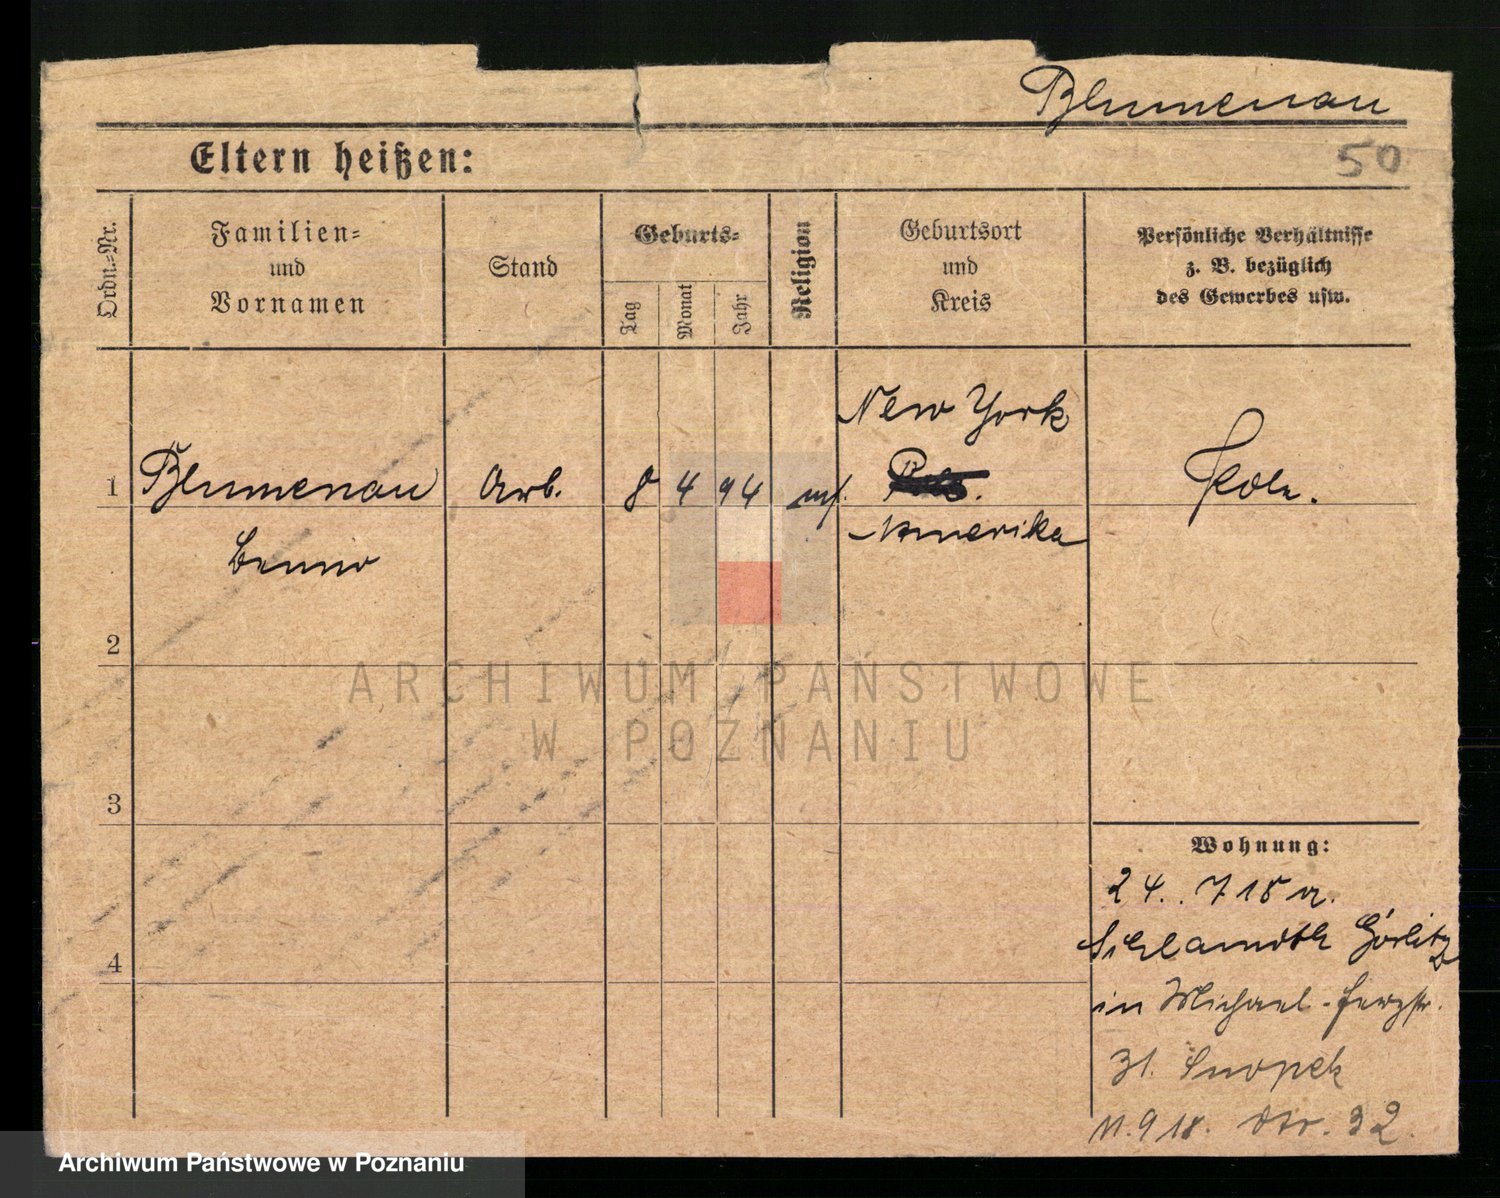 Blumenau
Eltern heißen:
50
Ordn.-Nr.
Familien-
und
Vornamen
Stand
Geburts-
Tag
Monat
Jahr
Religion
Geburtsort
und
Kreis
Persönliche Verhältnisse
z. B. bezüglich
des Gewerbes usw.
1
Blumenau
Benno
Arb.
8
4
94
New York
Amerika
2
3
4
Wohnung:
24. 7 18
Görlitz
in Michael
31. Snopek
11. 9 18. 32.
ARCHIWUM PAŃSTWOWE
W POZNANIU
Archiwum Państwowe w Poznaniu